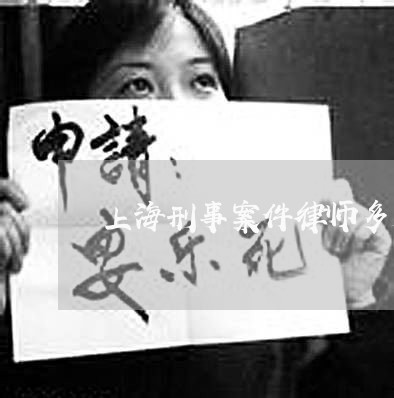 申請:
上海刑事案件律师多
安乐死